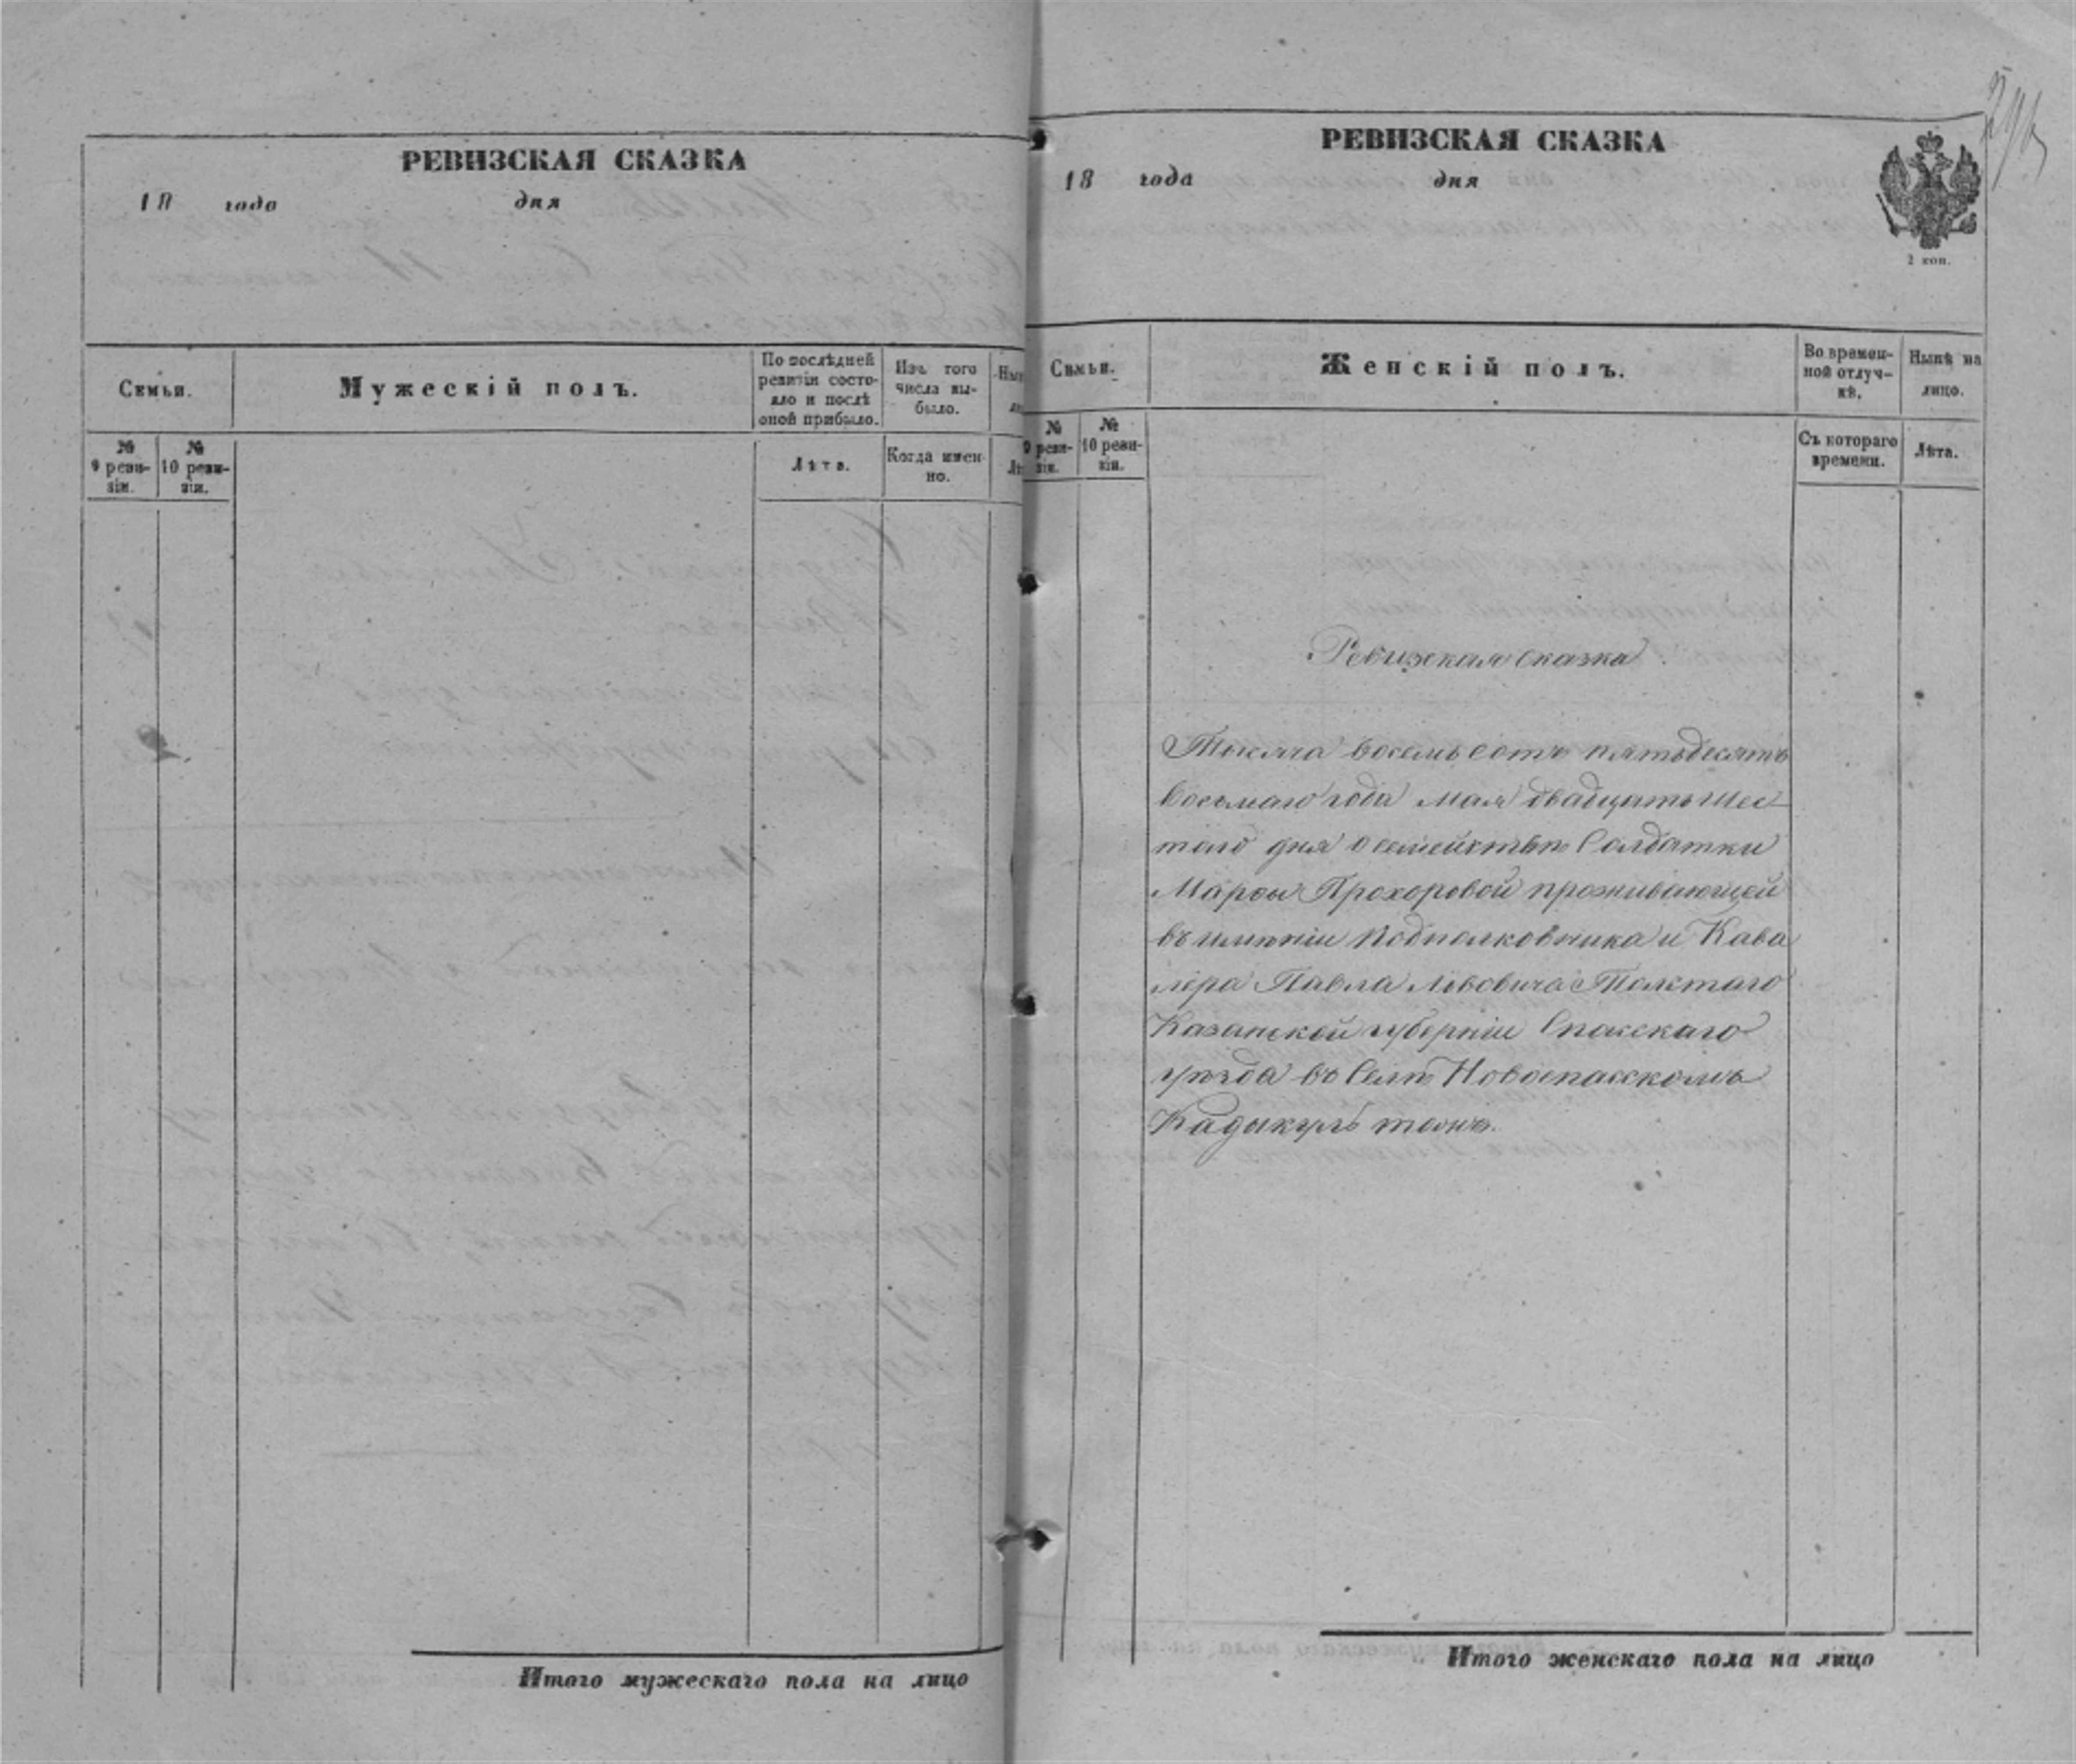 РЕВИЗСКАЯ СКАЗКА
18 года дня
Семьи.
Мужескій полъ.
По послѣдней ревизіи состояло и послѣ оной прибыло.
Изъ того числа выбыло.
№ 9 ревизіи.
№ 10 ревизіи.
Лѣта.
Когда именно.
Итого мужескаго пола на лицо
РЕВИЗСКАЯ СКАЗКА
18 года дня
2 коп.
Семьи.
Женскій полъ.
Во временной отлучкѣ.
Нынѣ на лицо.
№ 9 ревизіи.
№ 10 ревизіи.
Съ котораго времени.
Лѣта.
Ревизская сказка
Тысяча восемь сотъ пятьдесятъ
восьмаго года Мая двадцать шес
таго дня о семействѣ Солдатки
Марѳы Прохоровой проживающей
въ имѣніи Подполковника и Кава
лера Павла Львовича Толстаго
Казанской губерніи Спасскаго
уѣзда въ Селѣ Новоспасскомъ
Кадыкуль тожъ.
Итого женскаго пола на лицо